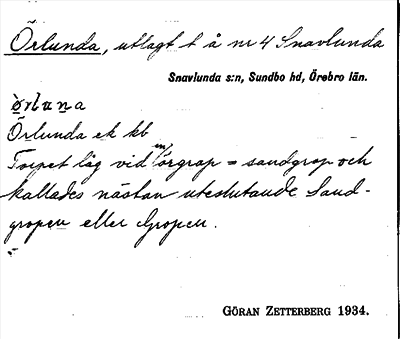 Örlunda, utlagt t å nr 4 Snavlunda
Snavlunda s:n, Sundbo hd, Örebro län.
Örlunda ek kb
Torpet låg vid en örgrop = sandgrop och
kallades nästan uteslutande Sand-
gropen eller Gropen.
GÖRAN ZETTERBERG 1934.